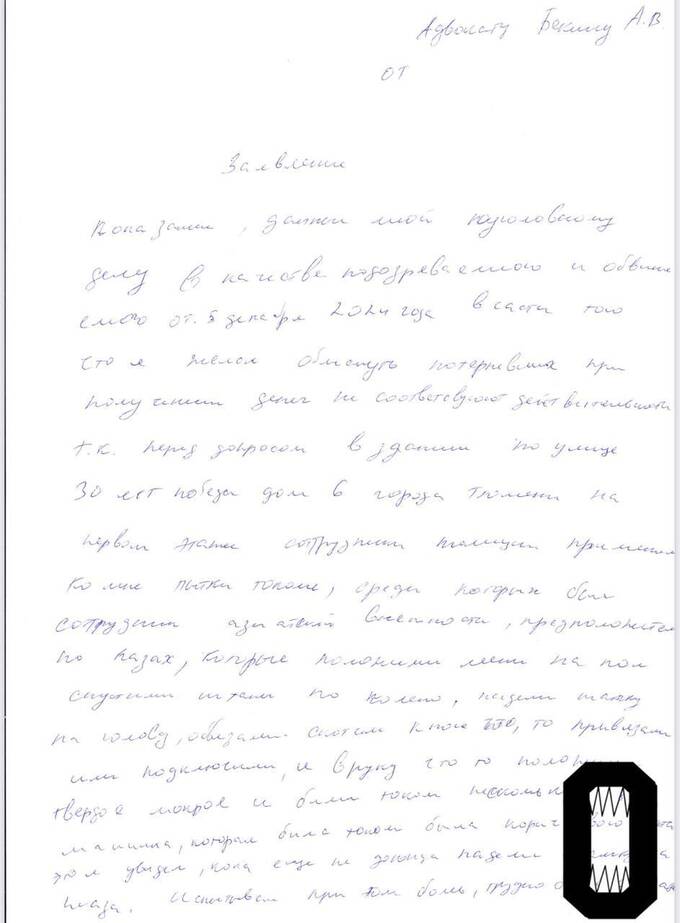 Адвокату Бекину А.В.
от
Заявление
Показания, данные мной по уголовному
делу в качестве подозреваемого и обвиня
емого от 5 декабря 2024 года в части того
что я желал обмануть потерпевших при
получении денег не соответствуют действительности
т.к. перед допросом в здании по улице
30 лет победы дом 6 города Тюмени на
первом этаже сотрудники полиции применили
ко мне пытки током, среди которых был
сотрудник азиатской внешности, предположительно
по казах, которые положили меня на пол
спустили штаны по колено, надели шапку
на голову, обвязали скотчем к ноге что, то привязали
или подключили, и в руку что то положили
твердое мокрое и били током
машинка, которая била током была
этом увидел, пока еще не надели
глаза. Испытывал при этом боль, трудно